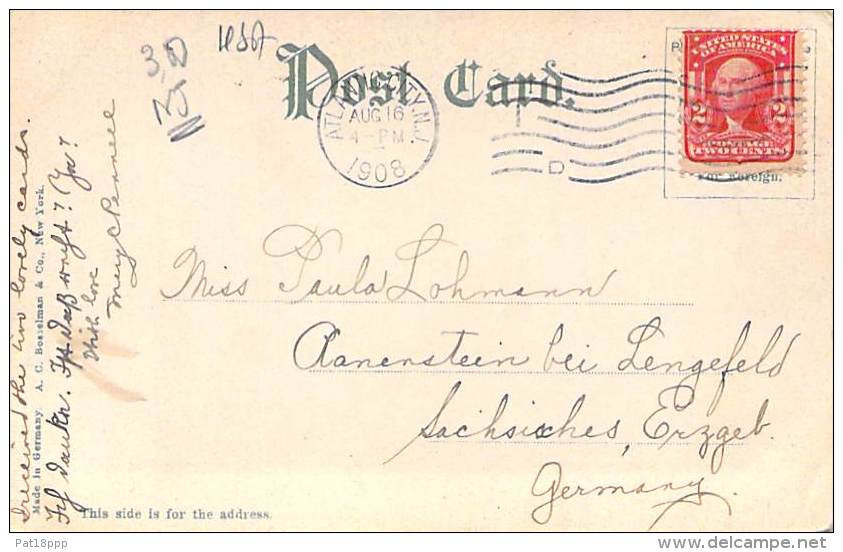 USA
3,0
Post Card.
ATLANTIC CITY, N.J.
AUG 16
4-PM
1908
D
UNITED STATES
OF AMERICA
2 2
POSTAGE
TWO CENTS
For Foreign.
Miss Paula Lohmann
Aanenstein bei Lengefeld
Sachsisches Erzgeb.
Germany.
This side is for the address.
Made in Germany. A. C. Bosselman & Co., New York.
I received the two lovely cards.
Ich danke. Ist daß recht? Ja?
With love
Mary C Pennell
Pat18ppp
www.delcampe.net